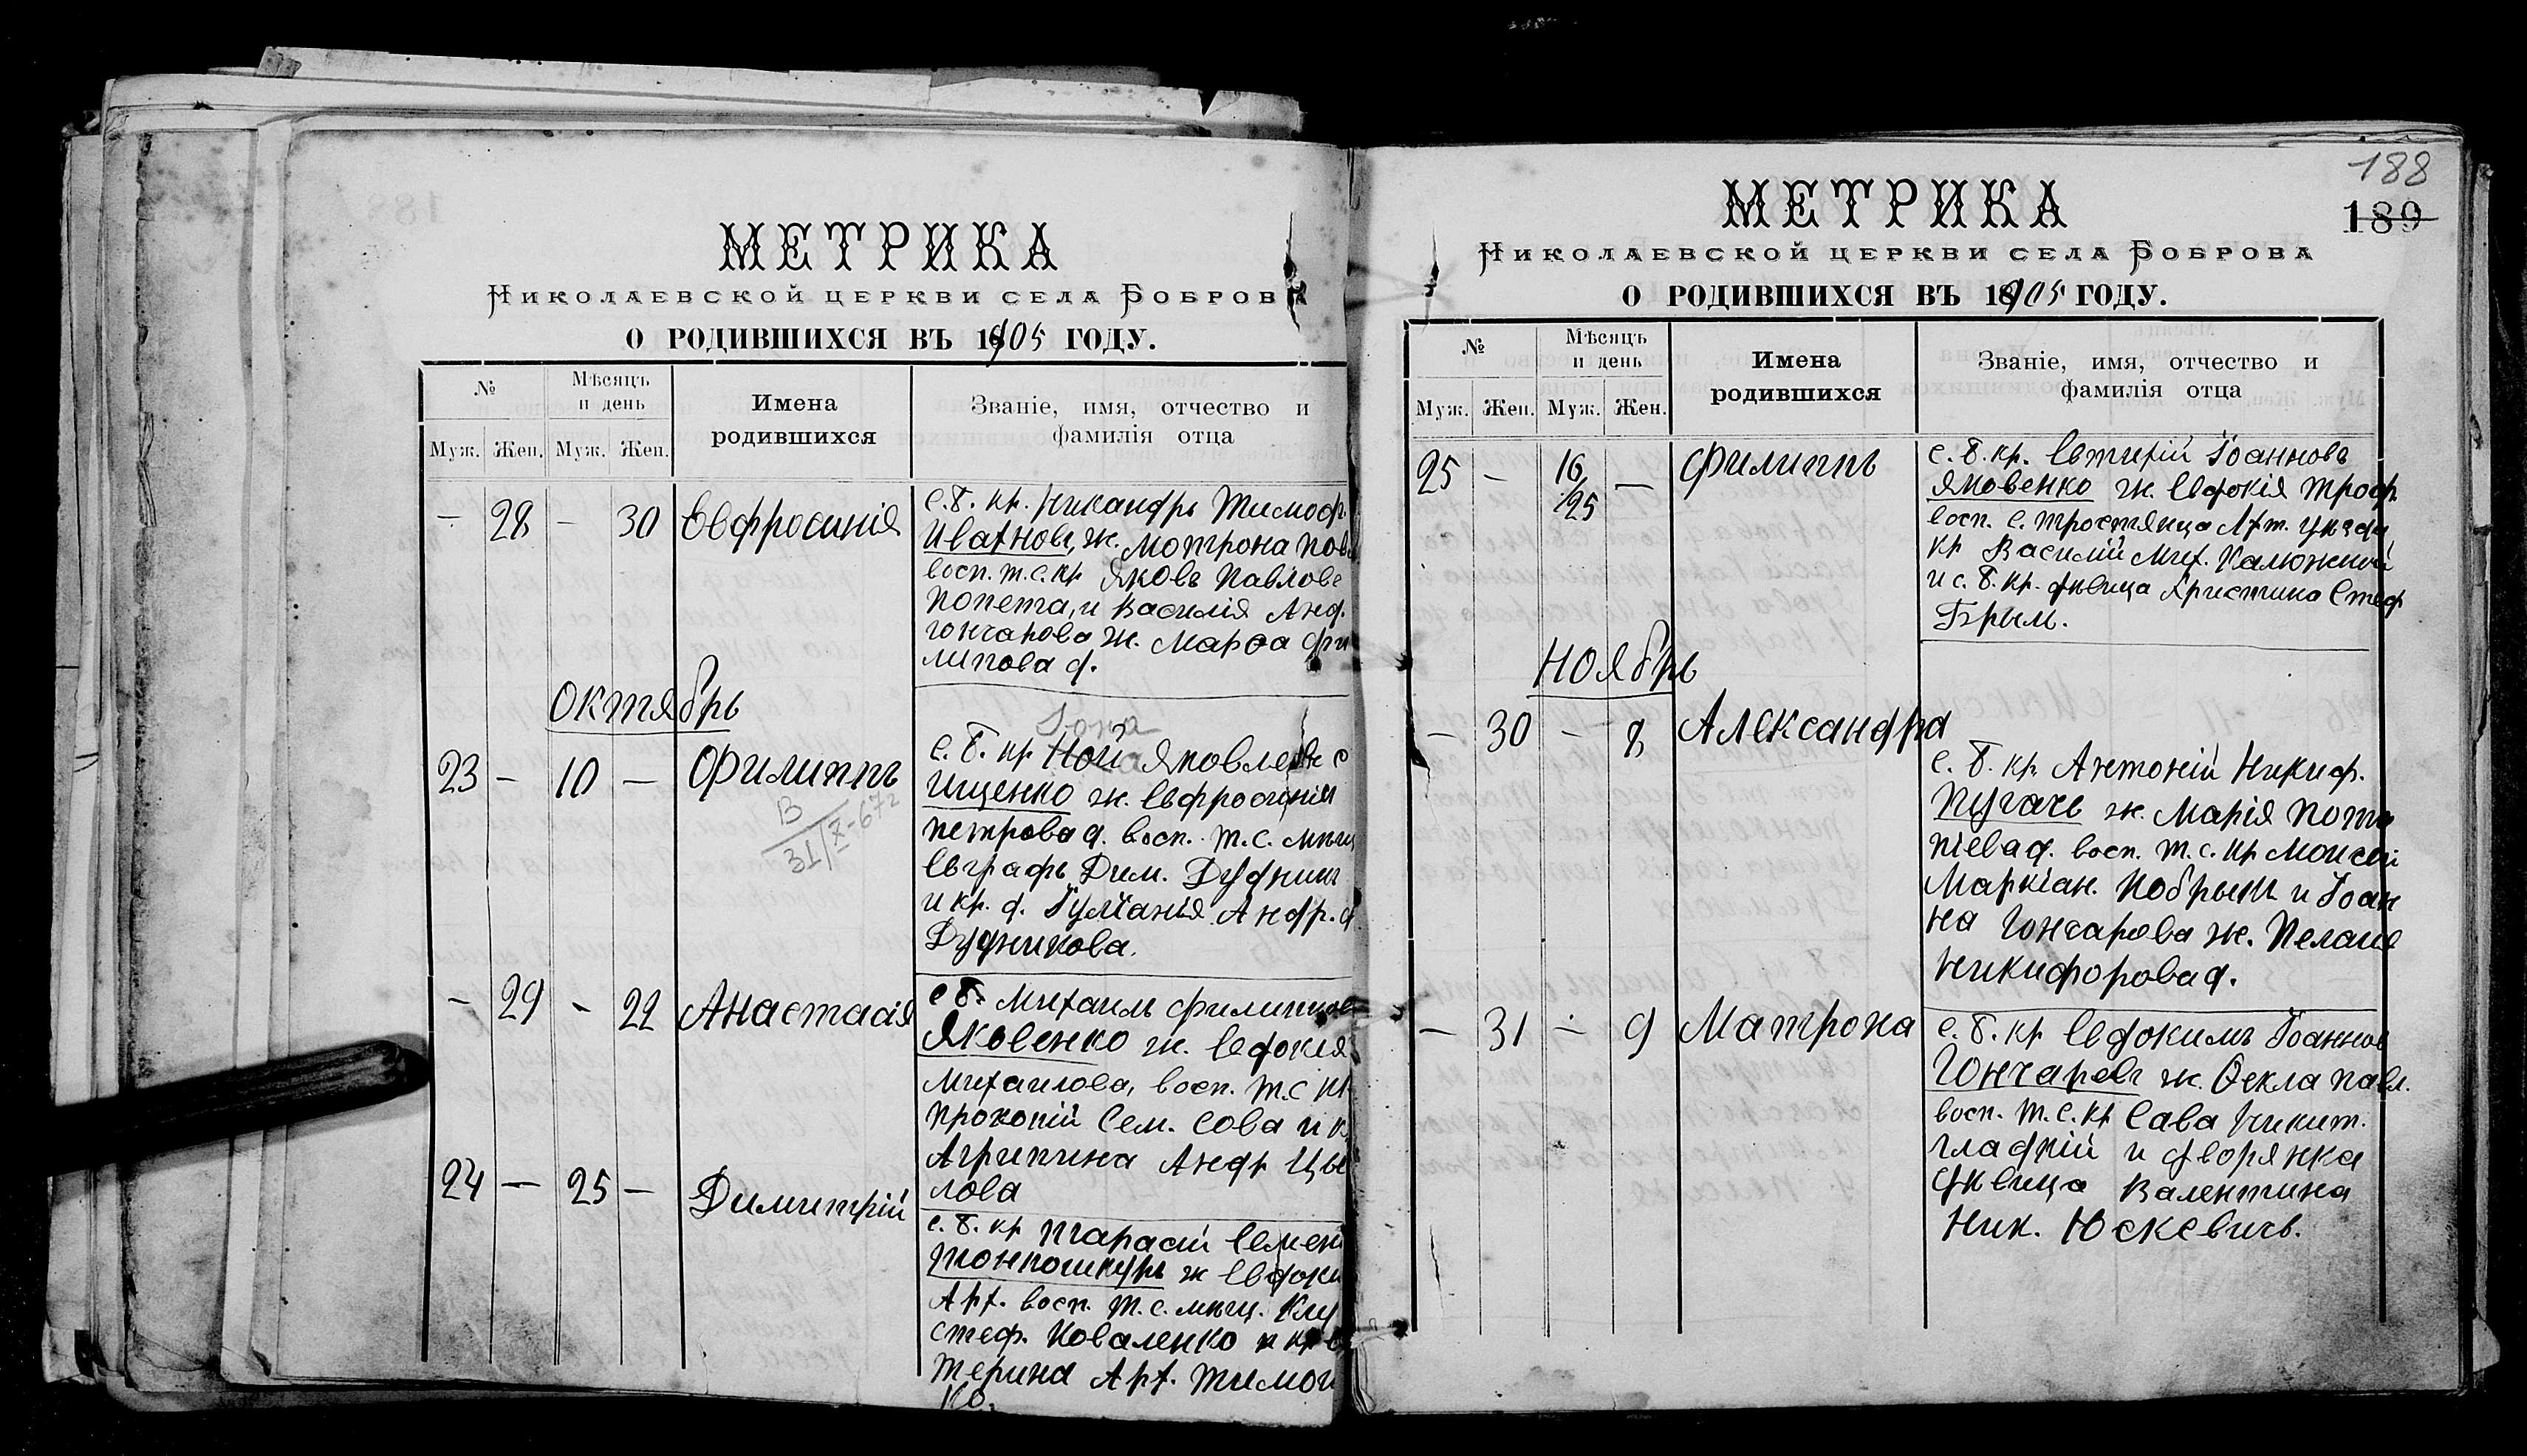 МЕТРИКА
Николаевской церкви села Боброва
О РОДИВШИХСЯ ВЪ 1905 ГОДУ.
№
Мѣсяцъ и день
Имена родившихся
Званіе, имя, отчество и фамилія отца
Муж. Жен. Муж. Жен.
— 28 — 30 Евфросинія
с. Б. кр. Никандръ Тимоф.
Ивахновъ, ж. Мотрона Пав
восп. т. с. кр Яковъ Павлове
Попета, и Василія Анд.
Гончарова ж. Марѳа Фи
липова д.
Октябрь
23 — 10 — Филиппъ
В
31/X-67г
Іона
с. Б. кр Ной Яковлев
Ищенко ж. Евфросинія
Петрова д. восп. т. с. мѣщ
Евграфъ Дим. Дудник
и кр. д. Іуліанія Андр. д.
Дудникова.
— 29 — 22 Анастасія
с Б. Михаилъ Филиппов
Яковенко ж. Евдокія
Михаилова, восп. т. с кр
Прокопій Сем. Сова и к
Агрипина Андр
лова
24 — 25 — Димитрій
с. Б. кр Тарасій Семен
Тонкошкуръ ж Евдоки
Арх. восп. т. с. мѣщ.
Стеф. Коваленко и кр
терина Арх. Тимон
ко.
188
189
МЕТРИКА
Николаевской церкви села Боброва
О РОДИВШИХСЯ ВЪ 1905 ГОДУ.
№
Мѣсяцъ и день
Имена родившихся
Званіе, имя, отчество и фамилія отца
Муж. Жен. Муж. Жен.
25 — 16/25 — Филиппъ
с. Б. кр. Евтихій Іоанновъ
Яковенко ж. Евдокія Троф.
восп. с. Тростянца Ахт. уѣзда
кр Василій Мих. Калюжный
и с. Б. кр. дѣвица Христина Стеф
Брыль.
Ноябрь
— 30 — 8 Александра
с. Б. кр. Антоній Никиф.
Пугачъ ж. Марія Пота
піева д. восп. т. с. кр Моисей
Маркіан. Кобрыш и Іоан
на Гончарова ж. Пелагія
Никифорова д.
— 31 — 9 Матрона
с. Б. кр Евдокимъ Іоаннов
Гончаровъ ж. Ѳекла Павл.
восп. т. с. кр Сава Никит.
Гладкій и дворянка
дѣвица Валентина
Ник. Юскевичъ.